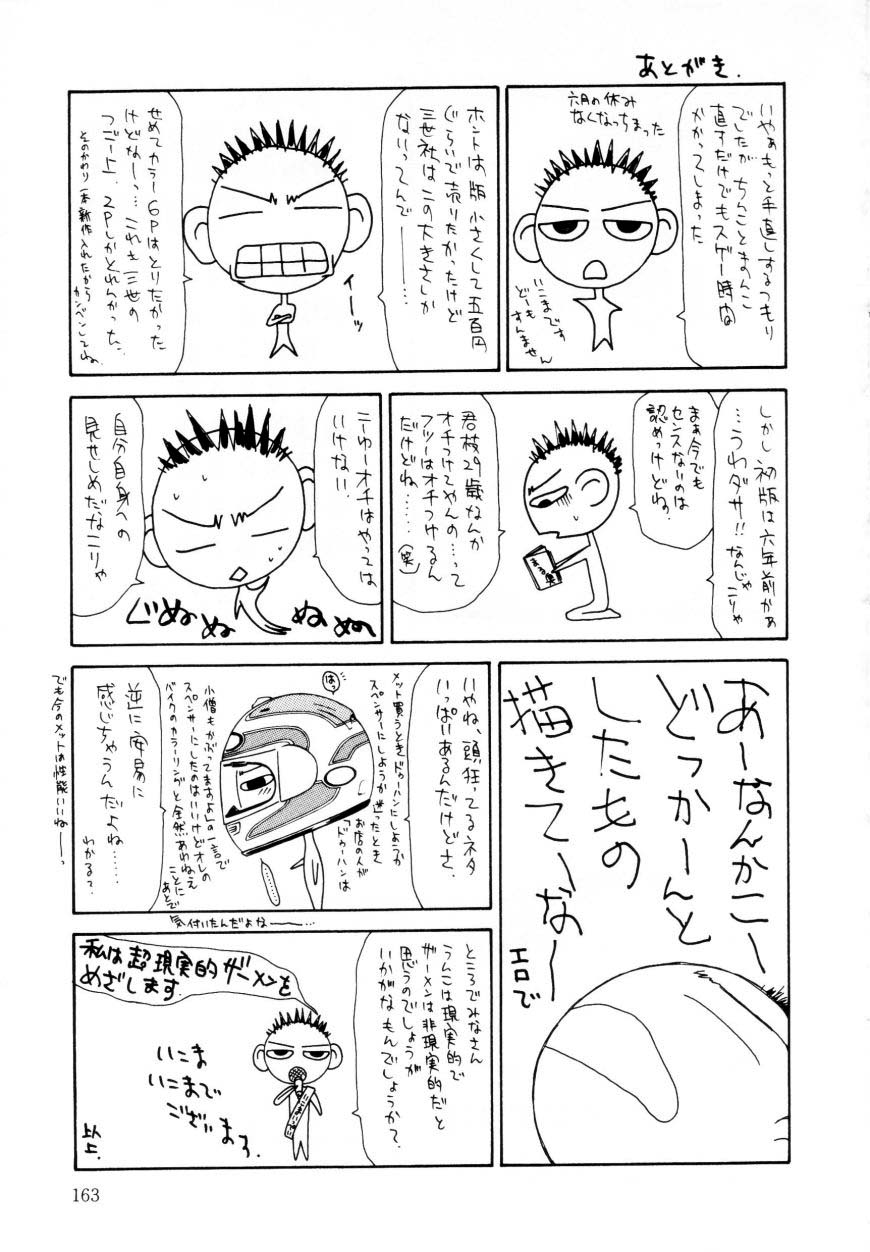 あとがき.
いやぁもっと手直しするつもり
でしたが ちんことまんこ
直すだけでもスゲー時間
かかってしまった
六月の休み
なくなっちまった
いこまです
どーも
すんません
ホントは版 小さくして五百円
ぐらいで売りたかったけど
三世社はこの大きさしか
ないってんで———…
イーッ
せめてカラー6Pはとりたかった
けどなーっ…これも三世の
つごー上、2Pしかとれんかった、
そのかわり一本新作入れたから
カンベンしてね.
しかし初版は六年前かぁ
…うわダサ!!なんじゃ
こりゃ
まぁ今でも
センスないのは
認めっけどね.
君枝29歳なんか
オチつけてやんの…って
フツーはオチつけるん
だけどね……(笑)
こーゆーオチはやっては
いけない.
自分自身への
見せしめだなこりゃ
ぐぬぬ ぬぬ
あーなんかこー
どっかーんと
したもの
描きてーなー
エロで
いやね、頭狂ってるネタ
いっぱいあるんだけどさ.
はっ
メット買うときドゥーハンにしようか
スペンサーにしようか迷ったとき
お店の人が
「ドゥーハンは
小僧もかぶってますよ」の一言で
スペンサーにしたのはいいけどオレの
バイクのカラーリングと全然あわねえ
ことに
あとで
気付いたんだよな———…
逆に安易に
感じちゃうんだよね……
わかる?
でも今のメットは性能いいねーっ
ところでみなさん
うんこは現実的で
ザーメンは非現実的だと
思うのでしょうが
いかがなもんでしょうか?
私は超現実的ザーメンを
めざします.
いこま
いこまで
ございます.
以上.
163